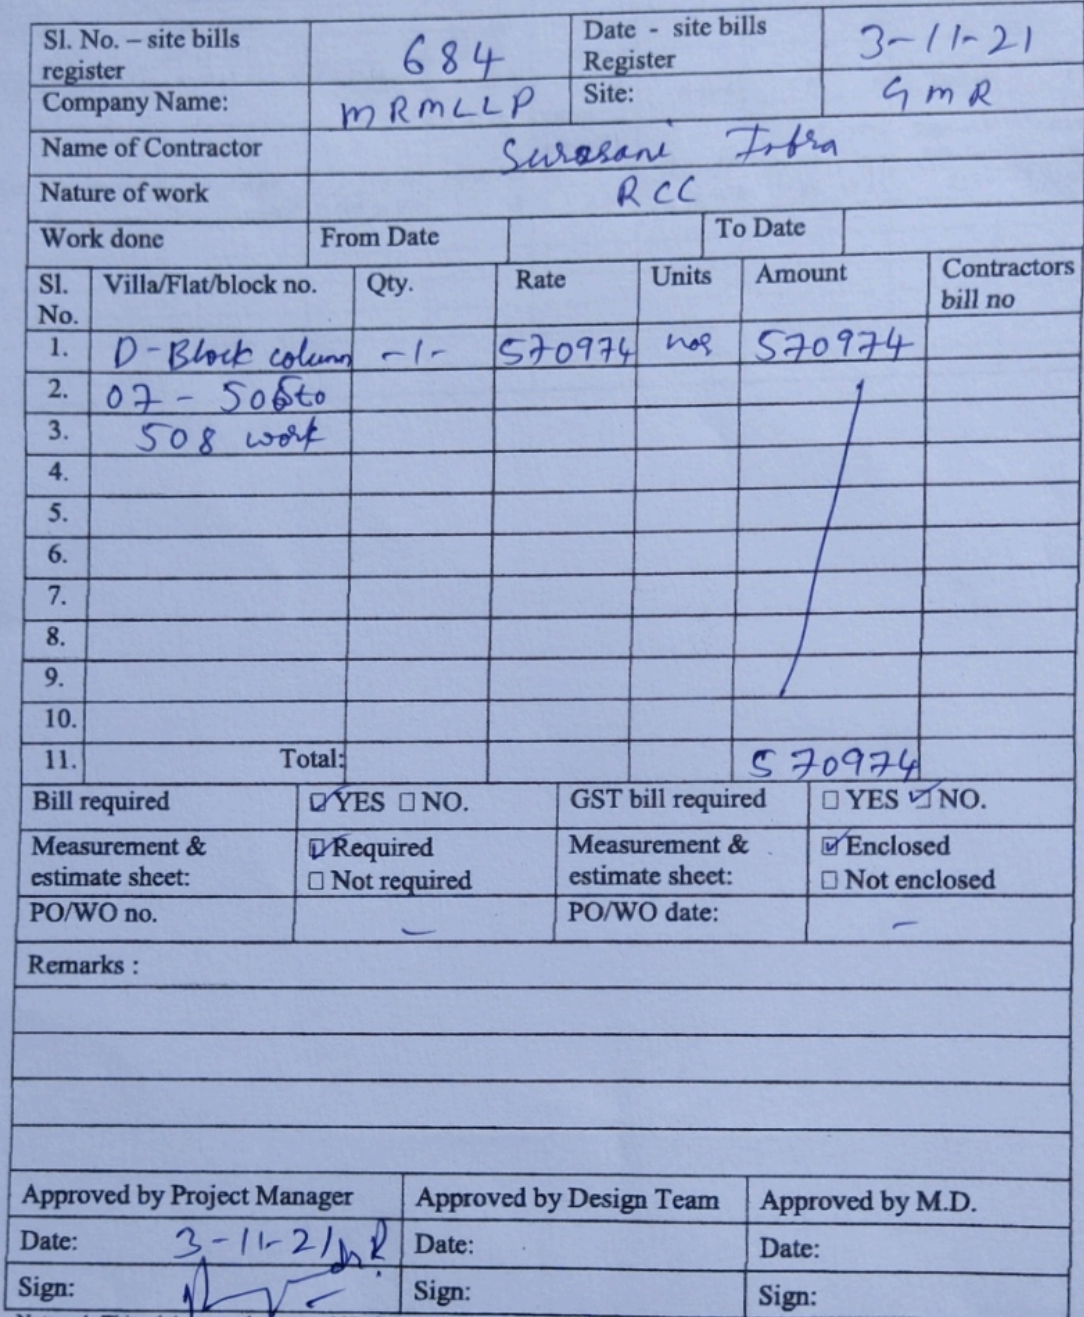 Sl. No. – site bills register 684 Date - site bills Register 3-11-21
Company Name: MRMLLP Site: GMR
Name of Contractor Surasani Infra
Nature of work RCC
Work done From Date To Date
Sl. No. Villa/Flat/block no. Qty. Rate Units Amount Contractors bill no
1. D-Block column -1- 570974 nos 570974
2. 07 - 506 to
3. 508 work
4.
5.
6.
7.
8.
9.
10.
11. Total: 570974
Bill required ☑ YES ☐ NO. GST bill required ☐ YES ☑ NO.
Measurement & estimate sheet: ☑ Required ☐ Not required Measurement & estimate sheet: ☑ Enclosed ☐ Not enclosed
PO/WO no. – PO/WO date: –
Remarks :
Approved by Project Manager Approved by Design Team Approved by M.D.
Date: 3-11-21 Date: Date:
Sign: Sign: Sign: